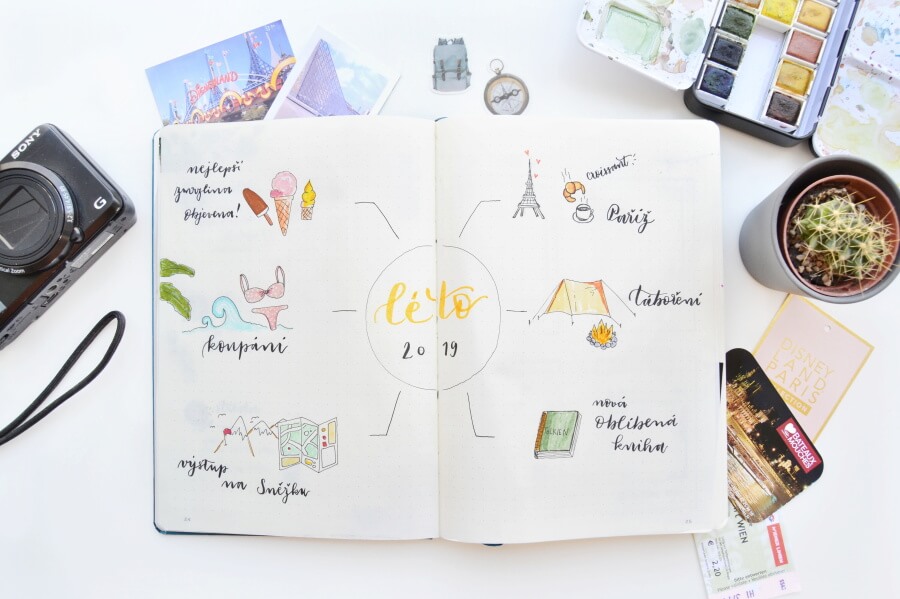 DISNEYLAND
SONY
G
nejlepší
zmrzlina
objevena!
croissant!
Paříž
léto
2019
koupání
táboření
výstup
na Sněžku
nová
oblíbená
kniha
DISNEY
LAND
PARIS
BATEAUX
MOUCHES
WIEN
€ 2,20